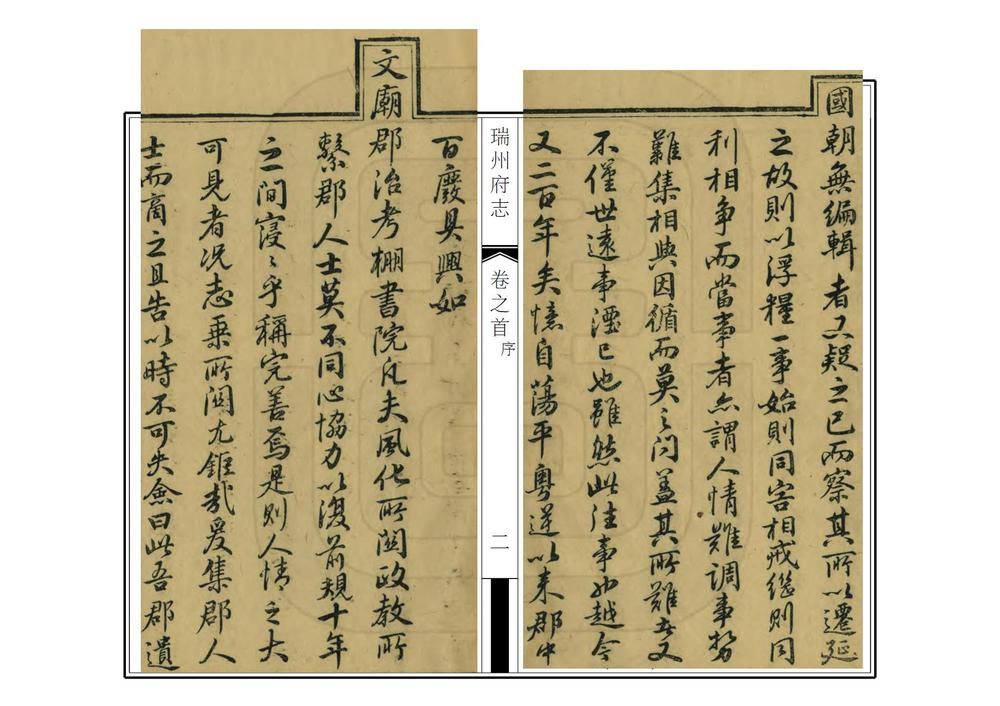 國朝無編輯者又疑之已而察其所以遷延
之故則以浮糧一事始則同害相戒繼則同
利相爭而當事者亦謂人情難調事勢
難集相與因循而莫之問蓋其所難者又
不僅世遠事湮已也雖然此往事也越今
又二百年矣憶自蕩平粵逆以來郡中
瑞州府志
卷之首
序
二
百廢具興如
文廟郡治考棚書院凡夫風化所關政教所
繫郡人士莫不同心協力以復前規十年
之間寖寖乎稱完善焉是則人情之大
可見者況志乘所關尤鉅哉爰集郡人
士而商之且告以時不可失僉曰此吾郡遺